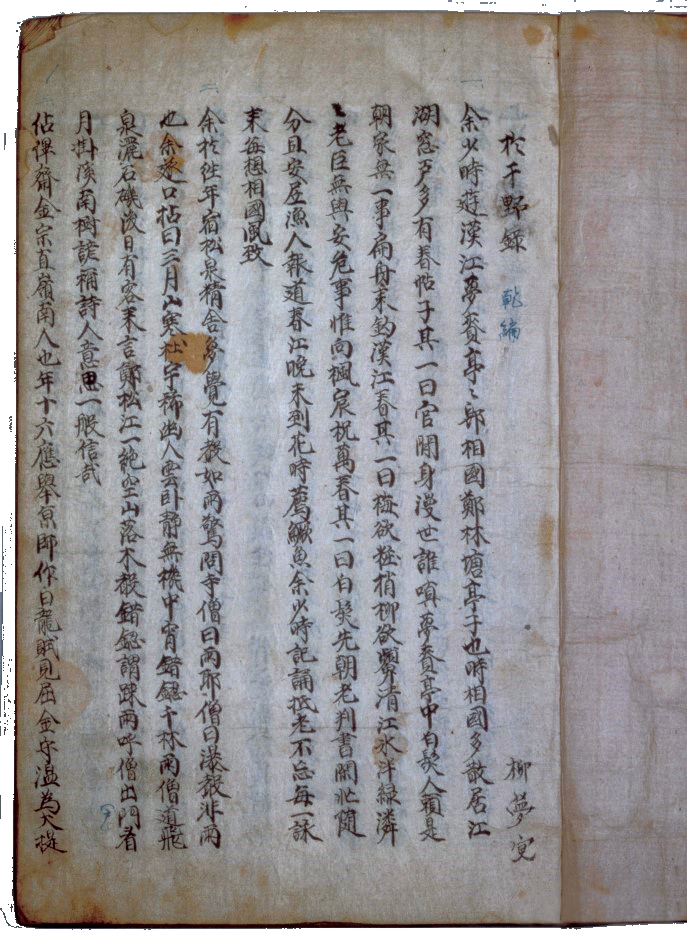 於于野錄 乾編 柳夢寅
一
余少時遊漢江夢賚亭々郞相國鄭林塘亭子也時相國多散居江
湖窓戶多有春帖子其一曰官閑身漫世誰嗔夢賚亭中白髮人頼是
朝家無一事扁舟來釣漢江春其一曰梅欲粧梢柳欲顰淸江氷泮綠潾
々老臣無與安危事惟向楓宸祝萬春其一曰白髮先朝老判書閑忙隨
分且安居漁人報道春江晚未到花時薦鱖魚余少時記誦抵老不忘每一詠
來每想相國風致
二
余於往年宿松泉精舍紛覺有聲如雨驚問寺僧曰雨耶僧曰瀑聲非雨
也余遂口占曰三月山寒杜宇稀出人雲卧靜無機中宵錯認千林雨僧道飛
泉灑石磯後日有客來言鄭松江一絶空山落木聲錯認謂踈雨呼僧出門看
月掛溪南樹諺稱詩人意思一般信哉
佔畢齋金宗直嶺南人也年十六應擧京師作白龍賦見屈金守溫爲大提